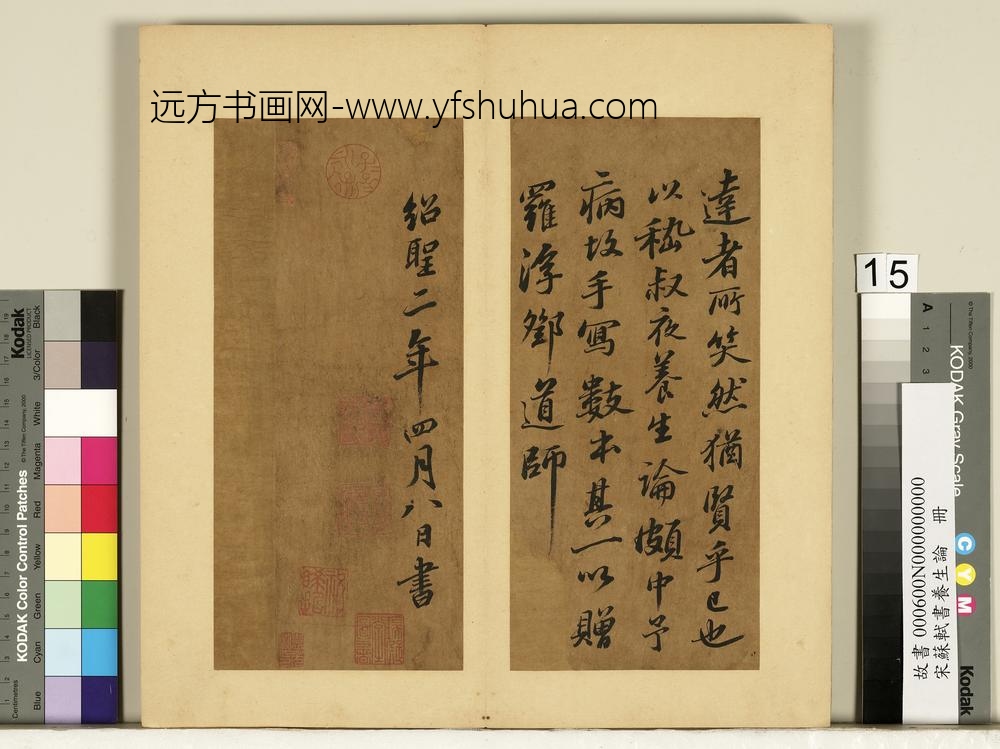 远方书画网-www.yfshuhua.com
達者所笑然猶賢乎已也
以嵇叔夜養生論頗中予
病故手寫數本其一以贈
羅浮鄧道師
紹聖二年四月八日書
15
故書 000600N000000000
宋蘇軾書養生論 冊
Kodak
LICENSED PRODUCT
KODAK Color Control Patches
© The Tiffen Company, 2000
Centimetres
Blue
Cyan
Green
Yellow
Red
Magenta
White
3/Color
Black
A 1 2 3
KODAK Gray Scale
© The Tiffen Company, 2000
C
Y
M
Kodak